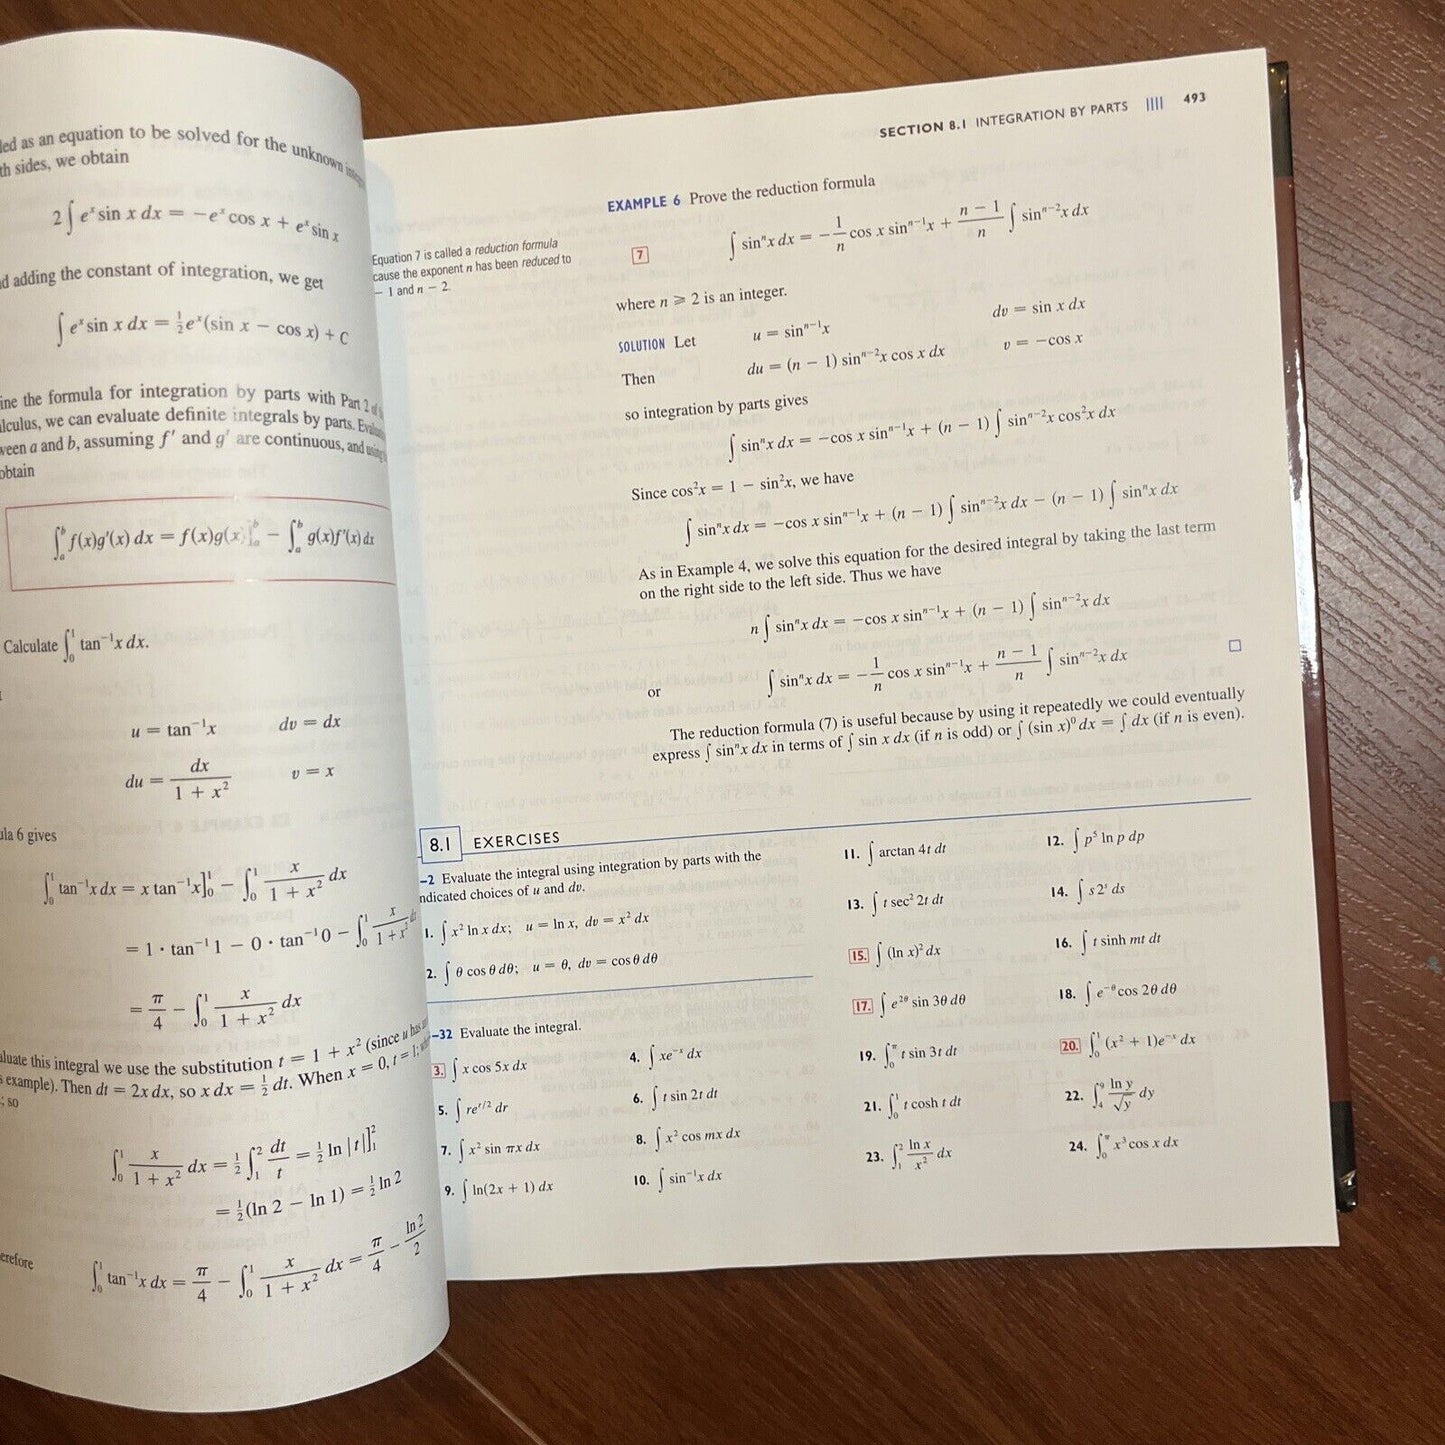 led as an equation to be solved for the unknown
th sides, we obtain
2 ∫ eˣ sin x dx = −eˣ cos x + eˣ sin x
d adding the constant of integration, we get
∫ eˣ sin x dx = ½eˣ(sin x − cos x) + C
ine the formula for integration by parts with Part 2
lculus, we can evaluate definite integrals by parts.
ween a and b, assuming f′ and g′ are continuous, and
obtain
∫ₐᵇ f(x)g′(x) dx = f(x)g(x)]ₐᵇ − ∫ₐᵇ g(x)f′(x) dx
Calculate ∫₀¹ tan⁻¹x dx.
u = tan⁻¹x dv = dx
du = dx/(1 + x²) v = x
ula 6 gives
∫₀¹ tan⁻¹x dx = x tan⁻¹x]₀¹ − ∫₀¹ x/(1 + x²) dx
= 1 · tan⁻¹1 − 0 · tan⁻¹0 − ∫₀¹ x/(1 + x²) dx
= π/4 − ∫₀¹ x/(1 + x²) dx
aluate this integral we use the substitution t = 1 + x² (since u has
example). Then dt = 2x dx, so x dx = ½ dt. When x = 0, t = 1;
; so
∫₀¹ x/(1 + x²) dx = ½ ∫₁² dt/t = ½ ln |t|]₁²
= ½(ln 2 − ln 1) = ½ ln 2
erefore
∫₀¹ tan⁻¹x dx = π/4 − ∫₀¹ x/(1 + x²) dx = π/4 − ln 2/2
SECTION 8.1 INTEGRATION BY PARTS |||| 493
Equation 7 is called a reduction formula
cause the exponent n has been reduced to
− 1 and n − 2.
EXAMPLE 6 Prove the reduction formula
7 ∫ sinⁿx dx = −(1/n) cos x sinⁿ⁻¹x + ((n − 1)/n) ∫ sinⁿ⁻²x dx
where n ⩾ 2 is an integer.
SOLUTION Let u = sinⁿ⁻¹x dv = sin x dx
Then du = (n − 1) sinⁿ⁻²x cos x dx v = −cos x
so integration by parts gives
∫ sinⁿx dx = −cos x sinⁿ⁻¹x + (n − 1) ∫ sinⁿ⁻²x cos²x dx
Since cos²x = 1 − sin²x, we have
∫ sinⁿx dx = −cos x sinⁿ⁻¹x + (n − 1) ∫ sinⁿ⁻²x dx − (n − 1) ∫ sinⁿx dx
As in Example 4, we solve this equation for the desired integral by taking the last term
on the right side to the left side. Thus we have
n ∫ sinⁿx dx = −cos x sinⁿ⁻¹x + (n − 1) ∫ sinⁿ⁻²x dx
or ∫ sinⁿx dx = −(1/n) cos x sinⁿ⁻¹x + ((n − 1)/n) ∫ sinⁿ⁻²x dx
The reduction formula (7) is useful because by using it repeatedly we could eventually
express ∫ sinⁿx dx in terms of ∫ sin x dx (if n is odd) or ∫ (sin x)⁰ dx = ∫ dx (if n is even).
8.1 EXERCISES
–2 Evaluate the integral using integration by parts with the
ndicated choices of u and dv.
1. ∫ x² ln x dx; u = ln x, dv = x² dx
2. ∫ θ cos θ dθ; u = θ, dv = cos θ dθ
–32 Evaluate the integral.
3. ∫ x cos 5x dx 4. ∫ xe⁻ˣ dx
5. ∫ re^(r/2) dr 6. ∫ t sin 2t dt
7. ∫ x² sin πx dx 8. ∫ x² cos mx dx
9. ∫ ln(2x + 1) dx 10. ∫ sin⁻¹x dx
11. ∫ arctan 4t dt 12. ∫ p⁵ ln p dp
13. ∫ t sec² 2t dt 14. ∫ s 2ˢ ds
15. ∫ (ln x)² dx 16. ∫ t sinh mt dt
17. ∫ e^(2θ) sin 3θ dθ 18. ∫ e^(−θ) cos 2θ dθ
19. ∫₀^π t sin 3t dt 20. ∫₀¹ (x² + 1)e⁻ˣ dx
21. ∫₀¹ t cosh t dt 22. ∫₄⁹ (ln y)/√y dy
23. ∫₁² (ln x)/x² dx 24. ∫₀^π x³ cos x dx